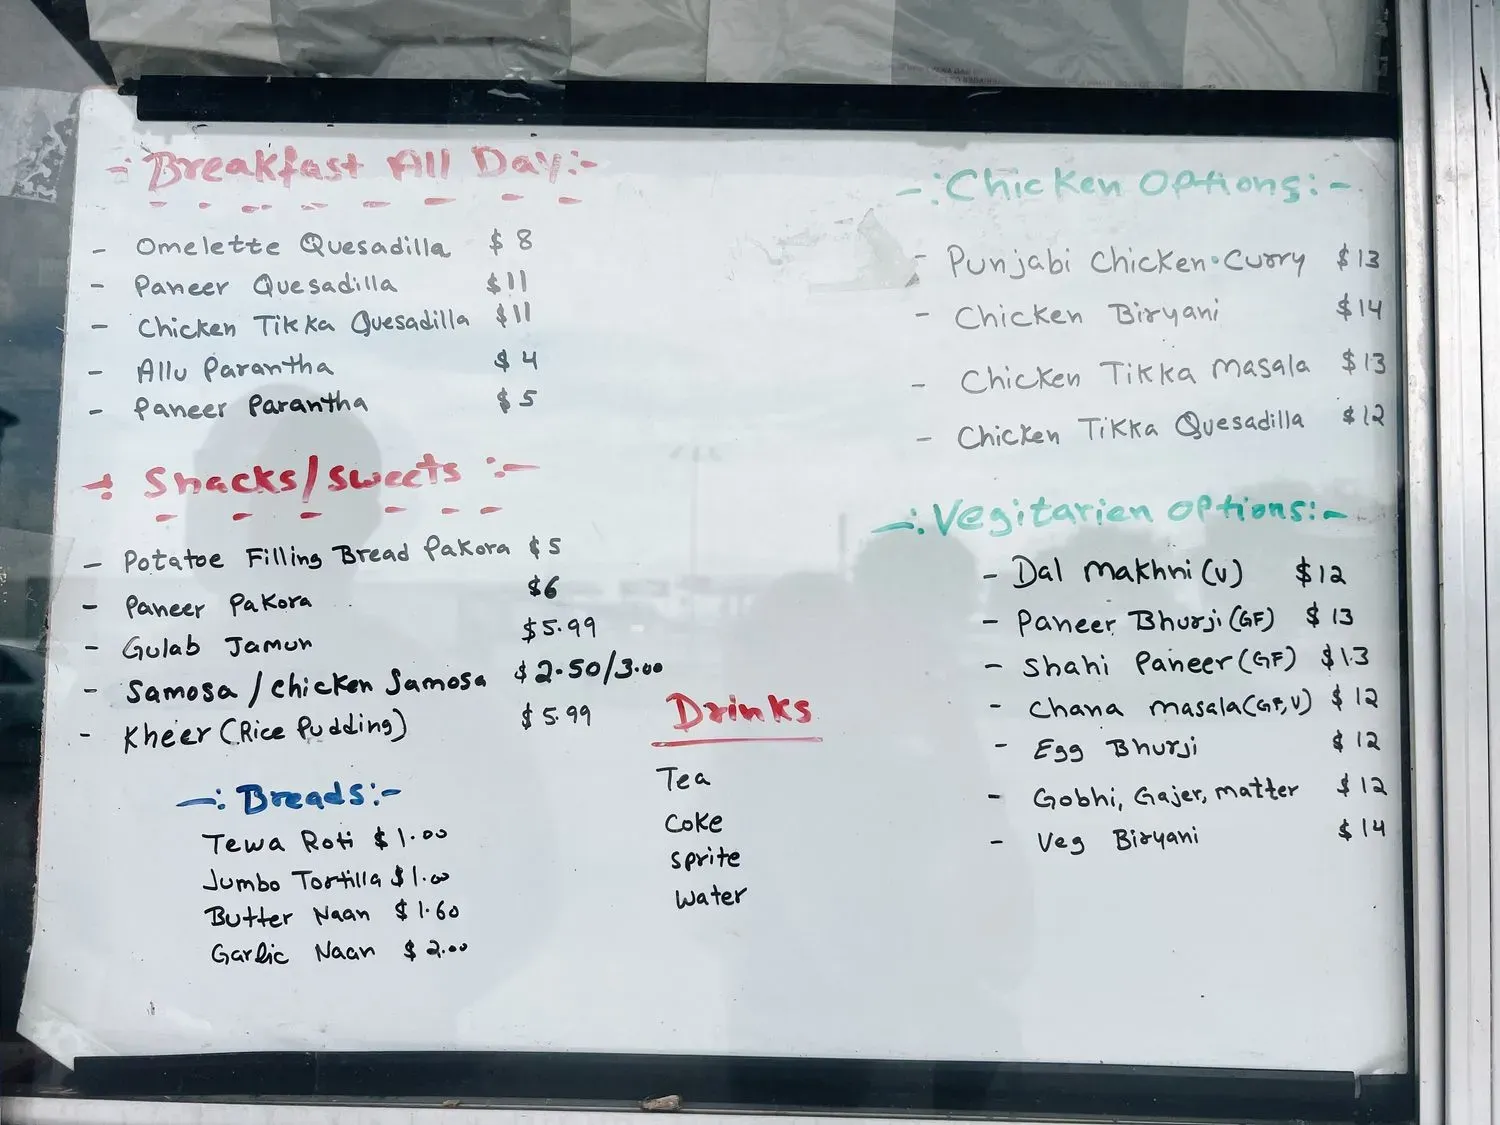 -: Breakfast All Day:-
- Omelette Quesadilla $8
- Paneer Quesadilla $11
- Chicken Tikka Quesadilla $11
- Allu Parantha $4
- Paneer Parantha $5
-: Snacks/Sweets :-
- Potatoe Filling Bread Pakora $5
- Paneer Pakora $6
- Gulab Jamun $5.99
- Samosa / Chicken Samosa $2.50/3.00
- Kheer (Rice Pudding) $5.99
-: Breads:-
Tewa Roti $1.00
Jumbo Tortilla $1.00
Butter Naan $1.60
Garlic Naan $2.00
Drinks
Tea
Coke
Sprite
Water
-: Chicken Options:-
- Punjabi Chicken Curry $13
- Chicken Biryani $14
- Chicken Tikka Masala $13
- Chicken Tikka Quesadilla $12
-: Vegitarien Options:-
- Dal Makhni (V) $12
- Paneer Bhurji (GF) $13
- Shahi Paneer (GF) $13
- Chana Masala (GF, V) $12
- Egg Bhurji $12
- Gobhi, Gajer, Matter $12
- Veg Biryani $14